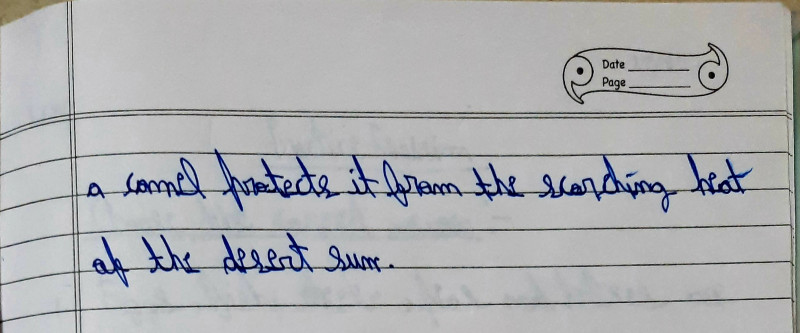 Date
Page
a camel protects it from the scorching heat
of the desert sun.